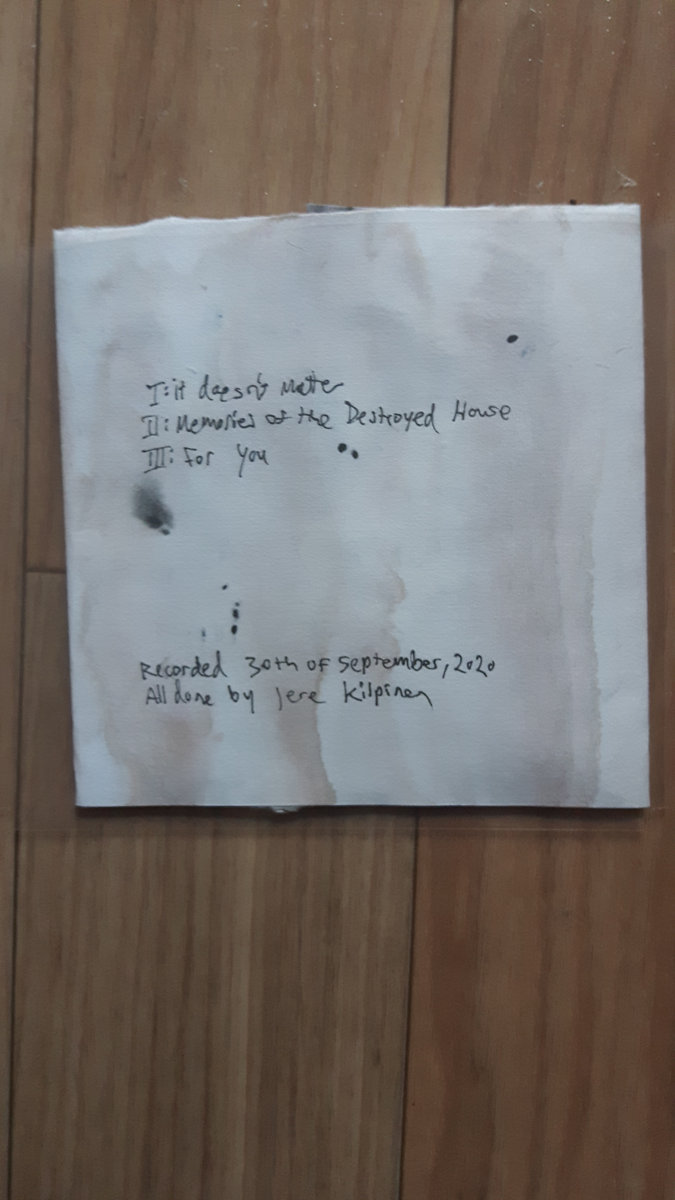 I: it doesn't matter
II: Memories of the Destroyed House
III: For you
Recorded 30th of September, 2020
All done by Jere Kilpinen